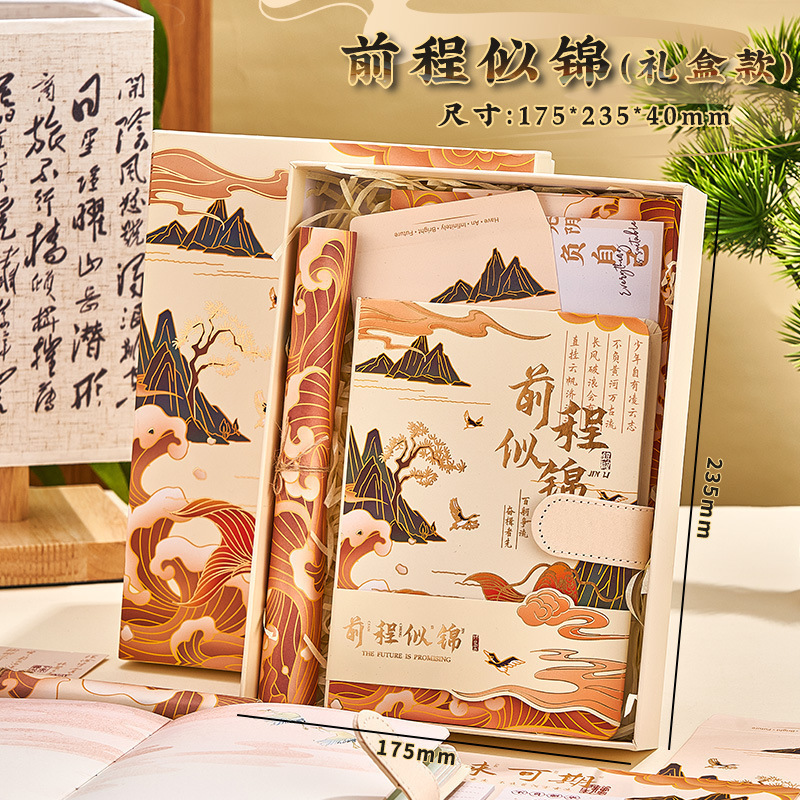 前程似锦(礼盒款)
尺寸:175*235*40mm
開
陰風怒號
日星隱曜山岳潛形
商旅不行檣傾楫摧薄
Have · An · Infinitely · Bright · Future
负自己
Everything
is suitable
少年自有凌云志
不负黄河万古流
长风破浪会有
直挂云帆济
前程
似锦
JIN LI
百舸争流
奋楫者先
前程似锦
THE FUTURE IS PROMISING
235mm
175mm
未可期